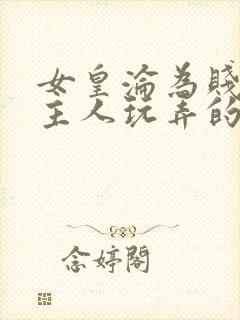 女皇淪為賤
主人玩弄的
念婷閣